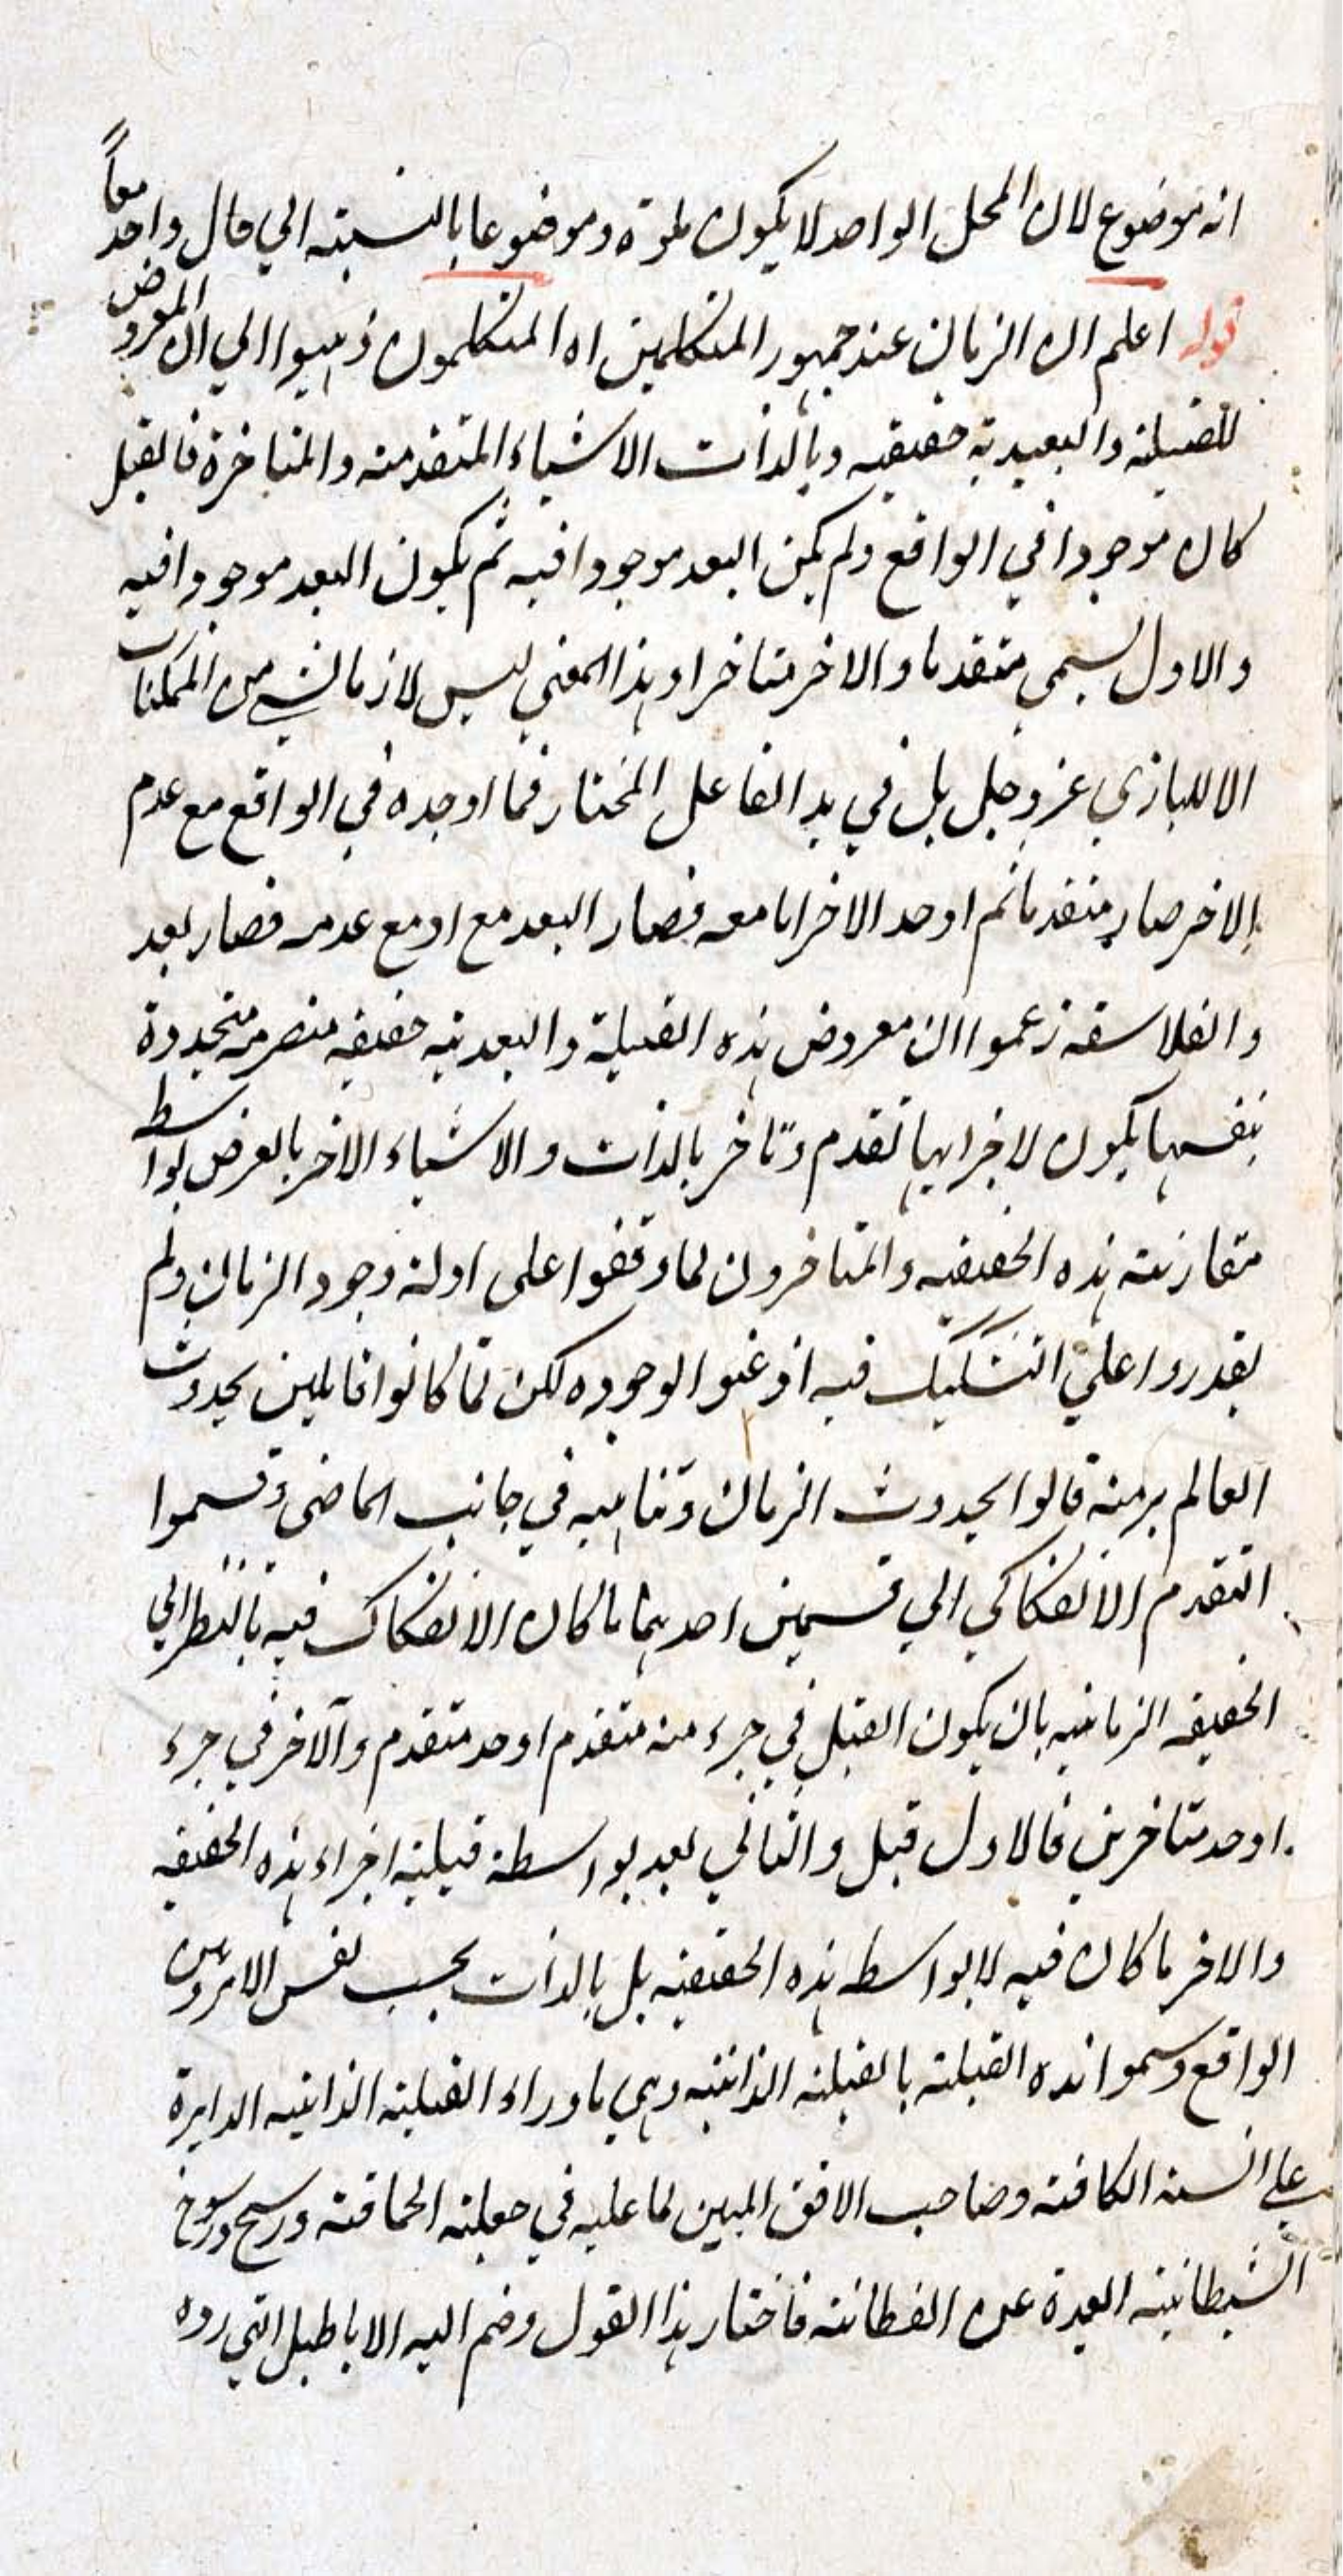 انه موضوع لان المحل الواحد لا يكون مادة وموضوعا بالنسبة الي حال واحد معاً
قوله اعلم ان الزمان عند جمهور المتكلمين اه المتكلمون ذهبوا الي ان المعروض
للقبلية والبعدية حقيقة وبالذات الاشياء المتقدمة والمتاخرة فالقبل
كان موجودا في الواقع ولم يكن البعد موجودا فيه ثم يكون البعد موجودا فيه
والاول يسمي متقدما والاخر متاخرا وهذا المعني ليس لازما لشي من الممكنات
الا للباري عز وجل بل في يد الفاعل المختار فما اوجده في الواقع مع عدم
الاخر صار متقدما ثم اوجد الاخر اما معه فصار البعد مع او مع عدمه فصار بعد
والفلاسفة زعموا ان معروض هذه القبلية والبعدية حقيقة منصرمة متجددة
بنفسها يكون لاجزايها تقدم وتاخر بالذات والاشياء الاخر بالعرض بواسطة
مقارنة هذه الحقيقة والمتاخرون لما وقفوا على ادلة وجود الزمان ولم
يقدروا علي التشكيك فيه اذ عنوا لوجوده لكن لما كانوا قايلين بحدوث
العالم برمته قالوا بحدوث الزمان وتناهيه في جانب الماضي وقسموا
التقدم الانفكاكي الي قسمين احدهما ما كان الانفكاك فيه بالنظر الي
الحقيقة الزمانية بان يكون القبل في جزء منه متقدم او حد متقدم والاخر في جزء
او حد متاخرين فالاول قبل والثاني بعد بواسطة قبلية اجزاء هذه الحقيقة
والاخر ما كان فيه لا بواسطة هذه الحقيقة بل بالذات بحسب نفس الامر ومتن
الواقع وسموا هذه القبلية بالقبلية الذاتية وهي ما وراء القبلية الذاتية الدايرة
علي السنة الكافة وصاحب الافق المبين لما عليه في جعلته الحماقة ورسخ رسوخ
الشيطانية البعيدة عن الفطانة فاختار هذا القول وضم اليه الاباطيل التي رده